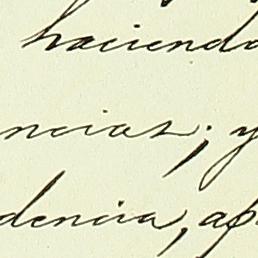 haciendo
ncias; y
dencia, ap